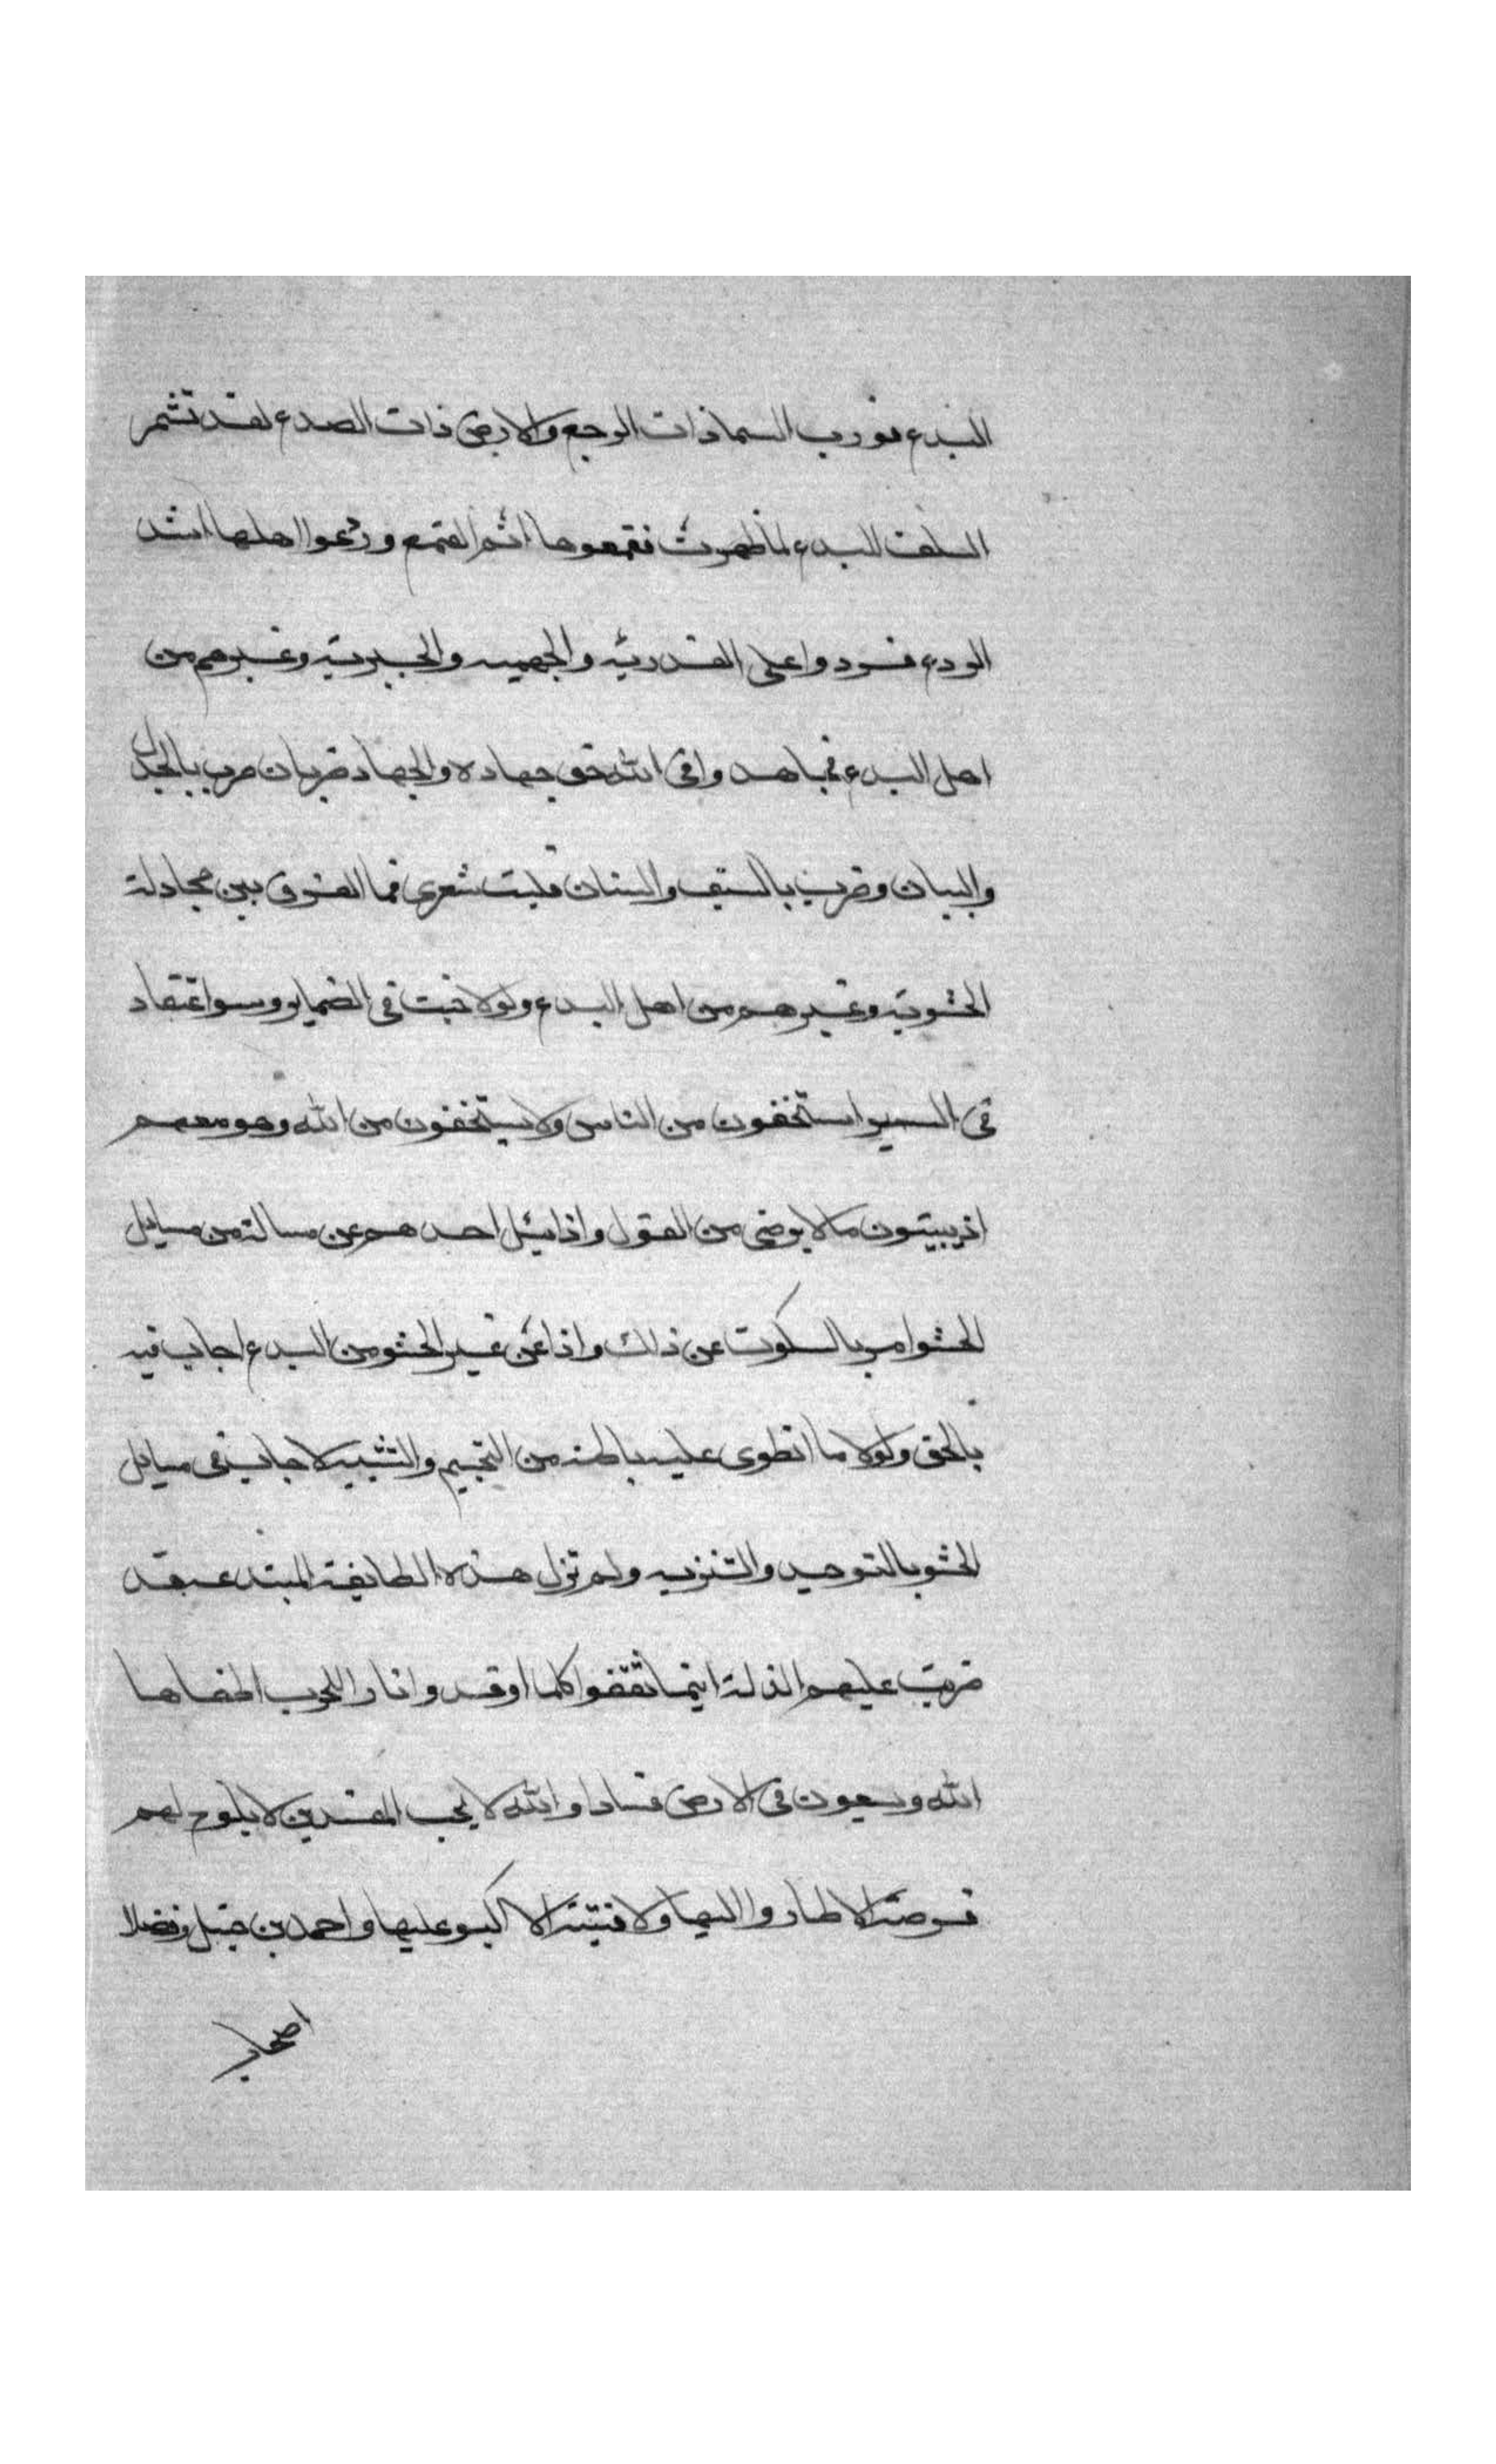 البدع فورب السما ذات الرجع والارض ذات الصدع لقد تشمر
السلف للبدع لما ظهرت فقمعوها اتم القمع وردعوا اهلها اشد
الردع فردوا على القدرية والجهميه والجبرية وغيرهم من
اهل البدع فجاهدوا في الله حق جهاده والجهاد ضربان ضرب بالجدل
والبيان وضرب بالسيف والسنان فليت شعري فما الفرق بين مجادلة
الحشوية وغيرهم من اهل البدع ولولا خبث في الضماير وسو اعتقاد
في السراير يستخفون من الناس ولا يستخفون من الله وهو معهم
اذ يبيتون ما لا يرضى من القول واذا سئل احدهم عن مسالة من مسايل
الحشو امر بالسكوت عن ذلك واذا عن غير الحشو من البدع اجاب فيه
بالحق ولولا ما انطوى عليه باطنه من التجسيم والتشبيه لاجاب في مسايل
الحشو بالتوحيد والتنزيه ولم تزل هذه الطايفة المبتدعة قد
ضربت عليهم الذلة اينما ثقفوا كلما اوقدوا نارا للحرب اطفاها
الله ويسعون في الارض فسادا والله لا يحب المفسدين لا يلوح لهم
فرصة الا طاروا اليها ولا فتنة الا اكبوا عليها واحمد بن حنبل وفضلا
اصحابه